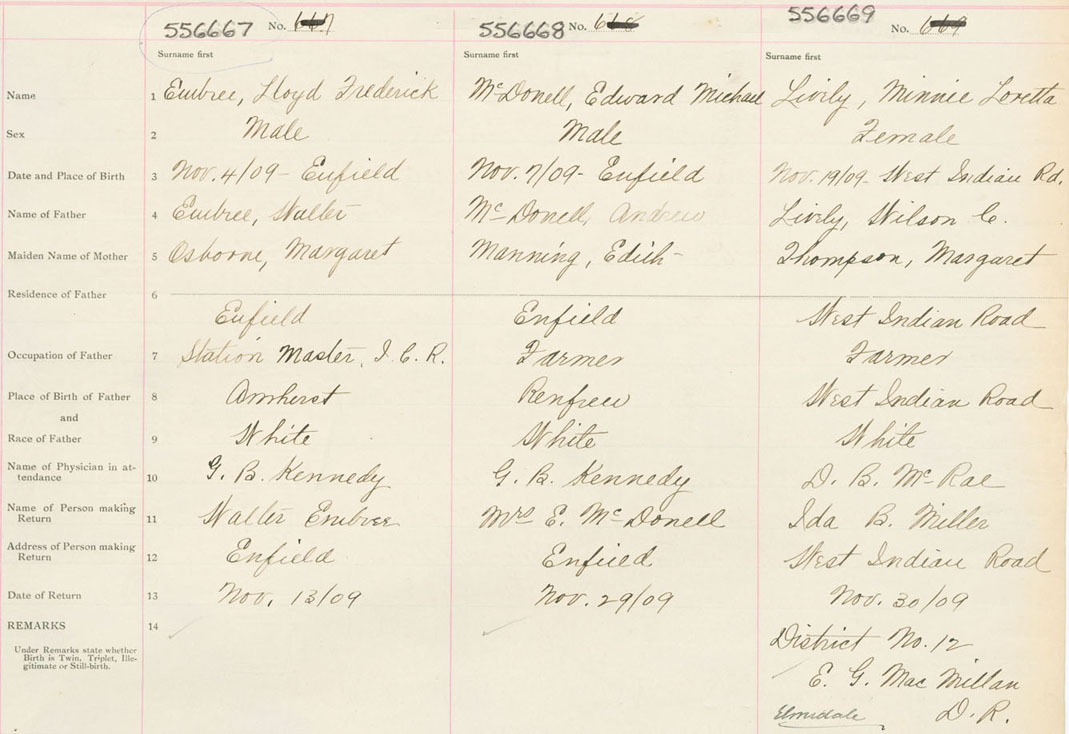 556667 No. 667 556668 No. 668 556669 No. 669
Surname first Surname first Surname first
Name 1 Embree, Lloyd Frederick McDonell, Edward Michael Livily, Minnie Loretta
Sex 2 Male Male Female
Date and Place of Birth 3 Nov. 4/09 - Enfield Nov. 7/09 - Enfield Nov. 19/09 - West Indian Rd.
Name of Father 4 Embree, Walter McDonell, Andrew Livily, Wilson C.
Maiden Name of Mother 5 Osborne, Margaret Manning, Edith Thompson, Margaret
Residence of Father 6
Enfield Enfield West Indian Road
Occupation of Father 7 Station Master, I. C. R. Farmer Farmer
Place of Birth of Father 8 Amherst Renfrew West Indian Road
and
Race of Father 9 White White White
Name of Physician in at-
tendance 10 G. B. Kennedy G. B. Kennedy D. B. McRae
Name of Person making
Return 11 Walter Embree Mrs E. McDonell Ida B. Miller
Address of Person making
Return 12 Enfield Enfield West Indian Road
Date of Return 13 Nov. 13/09 Nov. 29/09 Nov. 30/09
REMARKS 14
Under Remarks state whether
Birth is Twin, Triplet, Ille-
gitimate or Still-birth.
District No. 12
E. G. Mac Millan
Elmsdale D. R.